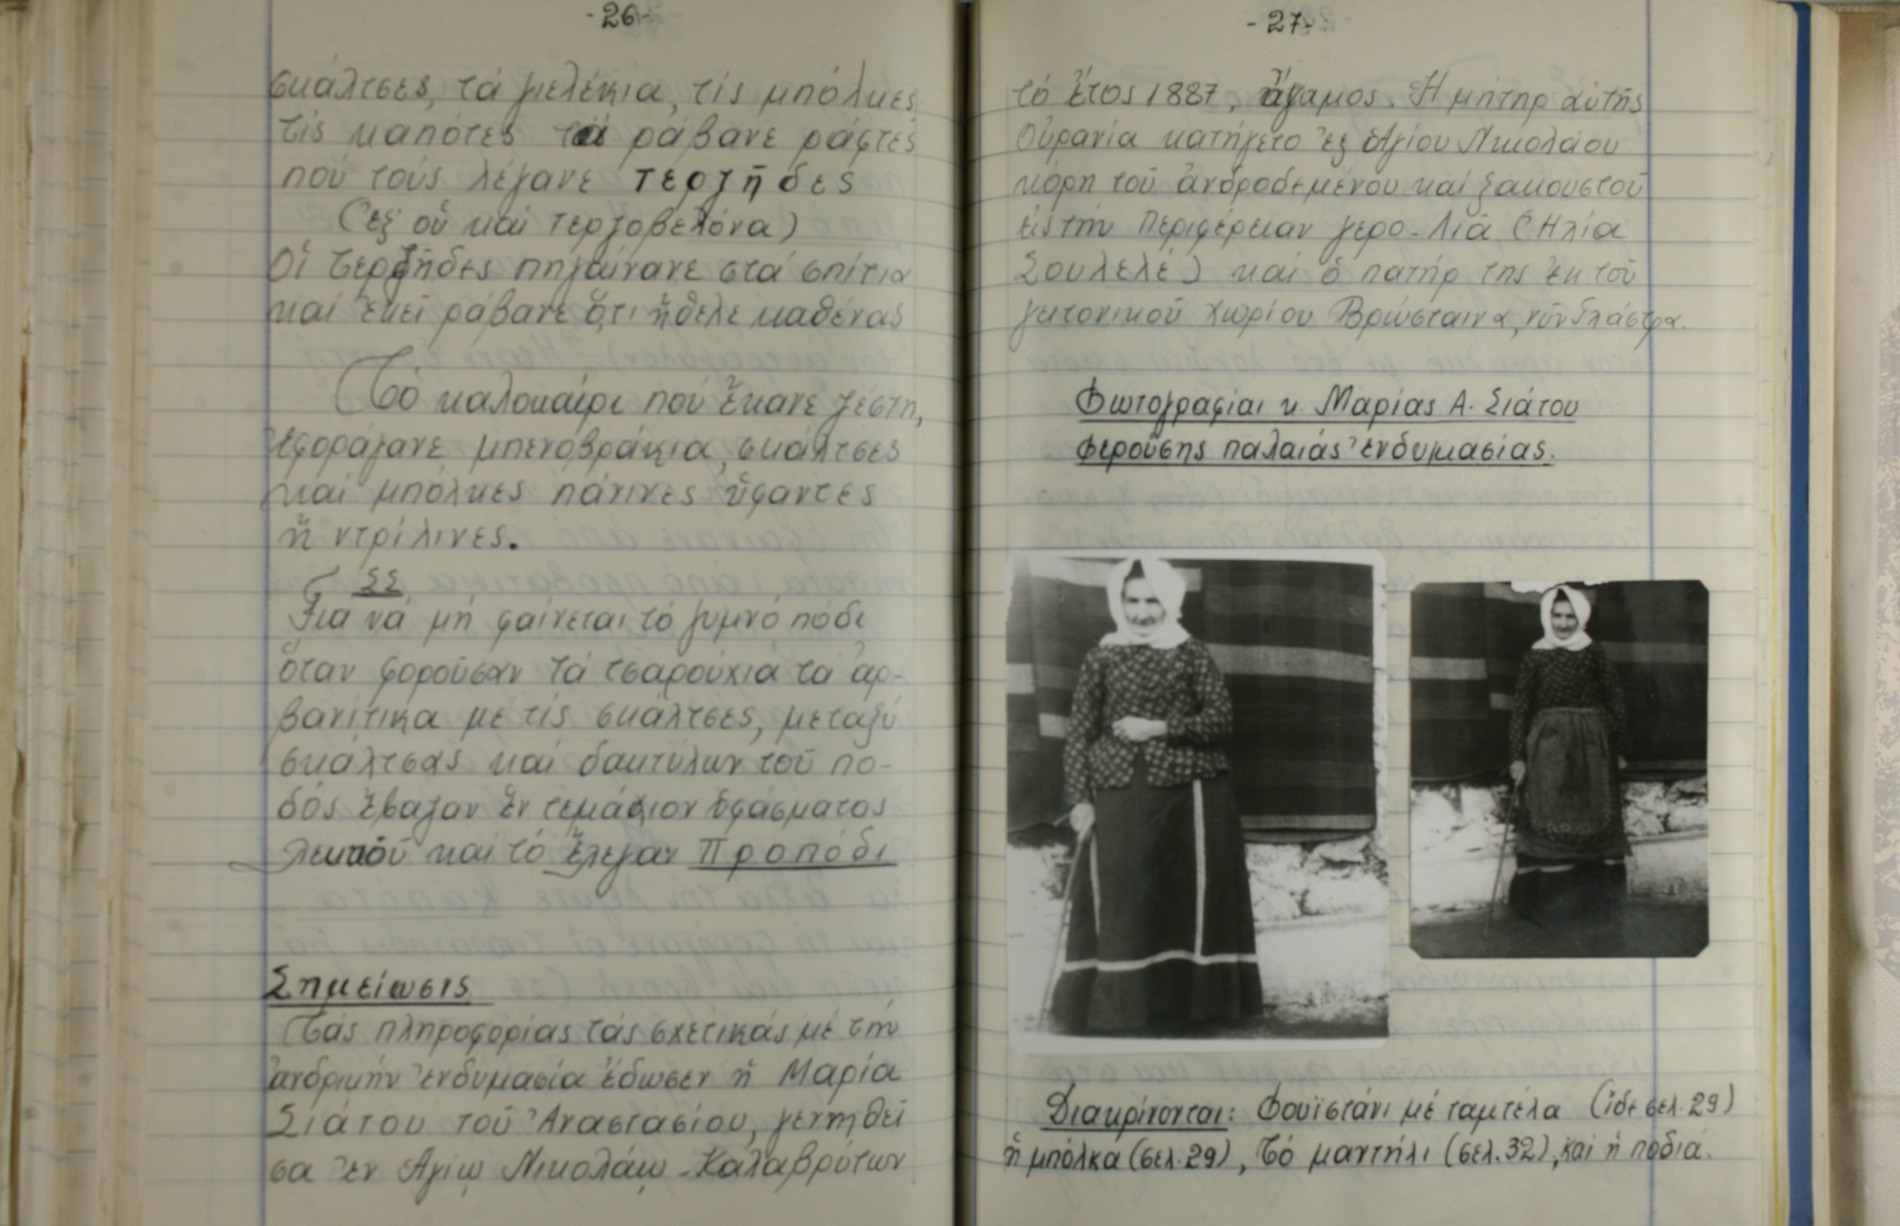 -26-
σκάλτσες, τά γιελέκια, τίς μπόλκες
τίς καπότες τά ράβανε ράφτες
πού τούς λέγανε τερζῆδες
(ἐξ οὗ καί τερζοβελόνα)
Οἱ τερζῆδες πηγαίνανε στά σπίτια
καί ἐκεῖ ράβανε ὅ,τι ἤθελε καθένας
Τό καλοκαίρι πού ἔκανε ζέστη,
ἐφοράγανε μπενοβράκια, σκάλτσες
καί μπόλκες πάνινες ὕφαντες
ἤ ντρίλινες.
ΣΣ
Για νά μή φαίνεται τό γυμνό πόδι
ὅταν φοροῦσαν τά τσαρούχια τά ἀρ-
βανίτικα μέ τίς σκάλτσες, μεταξύ
σκάλτσας καί δακτύλων τοῦ πο-
δός ἔβαζαν ἕν τεμάχιον ὑφάσματος
λευκοῦ καί τό ἔλεγαν Προπόδι
Σημείωσις
Τάς πληροφορίας τάς σχετικάς μέ τήν
ἀνδρικήν ἐνδυμασία ἔδωσεν ἡ Μαρία
Σιάτου τοῦ Ἀναστασίου, γεννηθεῖ
σα ἐν Ἁγίῳ Νικολάῳ - Καλαβρύτων
-27-
τό ἔτος 1887, ἄγαμος. Ἡ μήτηρ αὐτῆς
Οὐρανία κατήγετο ἐξ Ἁγίου Νικολάου
κόρη τοῦ ἀνδροδεμένου καί ξακουστοῦ
εἰς τήν περιφέρειαν γερο-Λιᾶ (Ηλία
Σουλελέ) καί ὁ πατήρ της ἐκ τοῦ
γειτονικοῦ χωρίου Βρώσταινα, νῦν
Φωτογραφίαι κ. Μαρίας Α. Σιάτου
φερούσης παλαιάς ἐνδυμασίας.
Διακρίνονται: Φουϊστάνι μέ ταμτέλα (ἰδε σελ. 29)
ἡ μπόλκα (σελ. 29), τό μαντήλι (σελ. 32), καί ἡ ποδιά.